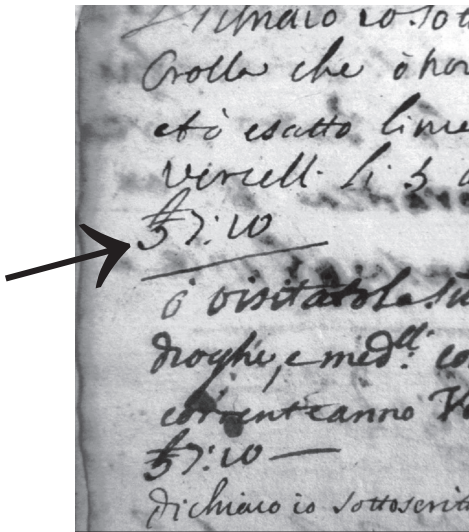 Dichiaro io sott
Crolla che ò
et ò esatto
Vercelli li 5
₤ 7:10
ò visitato le su
droghe, e med.di co
corrente anno
₤ 7:10 —
dichiaro io sottoscrit